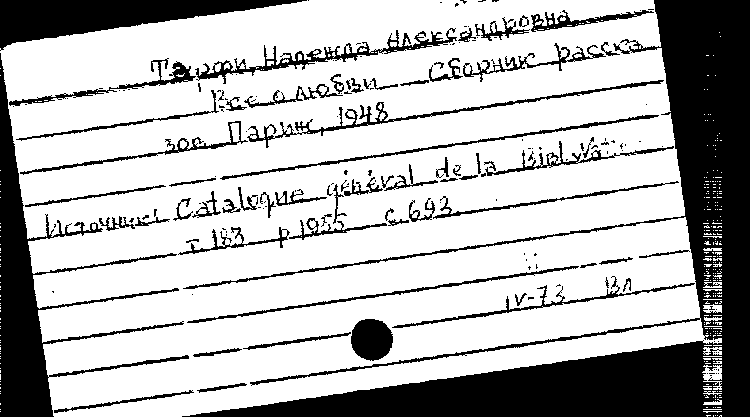 Тэффи, Надежда Александровна
Все о любви Сборник расска
зов Париж, 1948
Источник: Catalogue général de la Bibl. Natio
т. 183 p 1955 с. 693
IV-73 Вл